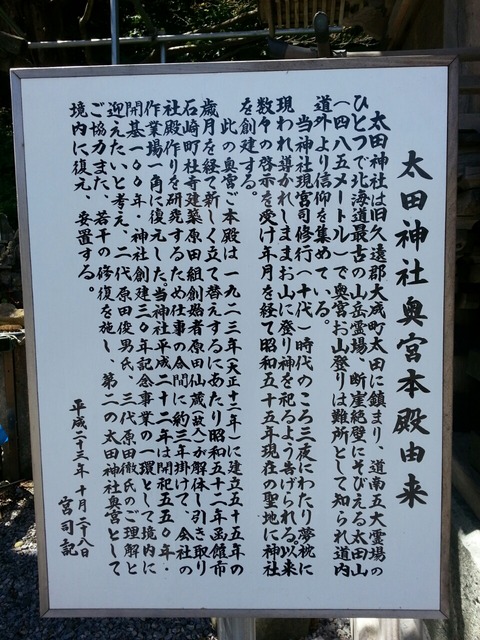 太田神社奥宮本殿由来
太田神社は旧久遠郡大成町太田に鎮まり、道南五大霊場の
ひとつで北海道最古の山岳霊場、断崖絶壁にそびえる太田山
(四八五メートル)で奥宮お山登りは難所として知られ道内
道外より信仰を集めている。
当神社現宮司修行(十代)時代のころ三夜にわたり夢枕に
現われ導かれしままお山に登り神を祀るよう告げられる。以来
数々の啓示を受け年月を経て昭和五十五年現在の聖地に神社
を創建する。
此の奥宮ご本殿は一九二三年(大正十二年)に建立五十五年の
歳月を経て新しく立て替えするにあたり昭和五十二年函館市
石崎町社寺建築原田組創始者原田仙蔵(故人)が解体し引き取り
社殿作りを研究するため仕事の合間に約三年掛けて会社の
作業場一角に復元した。当神社平成二十二年は開祀五五〇年・
開基一〇〇年・神社創建三〇年記念事業の一環として境内に
迎えたいと考え、二代原田俊男氏、三代原田徹氏のご理解と
ご協力また、若干の修復を施し、第二の太田神社奥宮として
境内に復元、安置する。
平成二十三年十月二十八日
宮司記